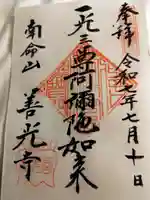 奉拝 令和年七月十日
一光三尊阿彌陀如来
南命山 善光寺